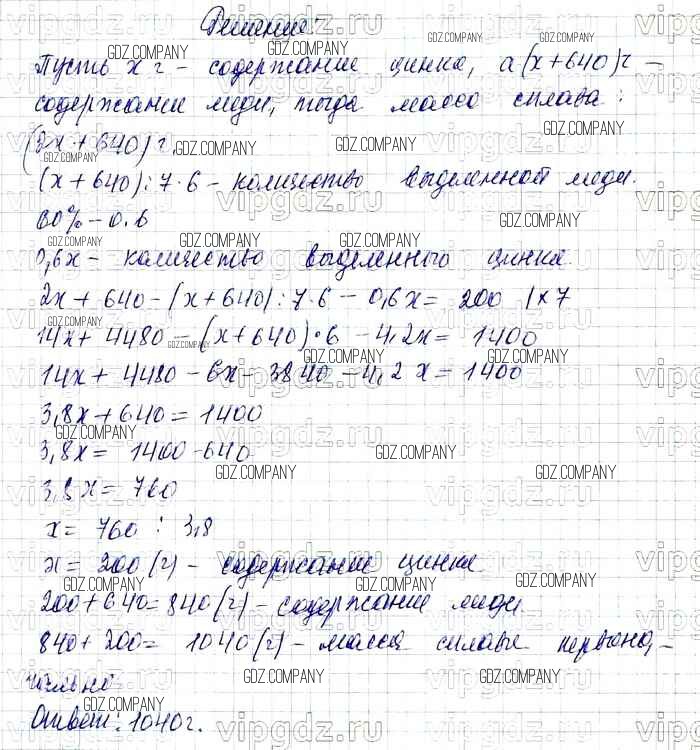 Решение:
Пусть x г - содержание цинка, а (x+640) г -
содержание меди, тогда масса сплава:
(2x+640) г.
(x+640):7·6 - количество выделенной меди.
60% - 0.6
0,6x - количество выделенного цинка
2x+640-(x+640):7·6-0,6x=200 |×7
14x+4480-(x+640)·6-4,2x=1400
14x+4480-6x-3840-4,2x=1400
3,8x+640=1400
3,8x=1400-640
3,8x=760
x=760:3,8
x=200(г) - содержание цинка
200+640=840(г) - содержание меди.
840+200=1040(г) - масса сплава первона-
чально
Ответ: 1040г.
vipgdz.ru
GDZ.COMPANY